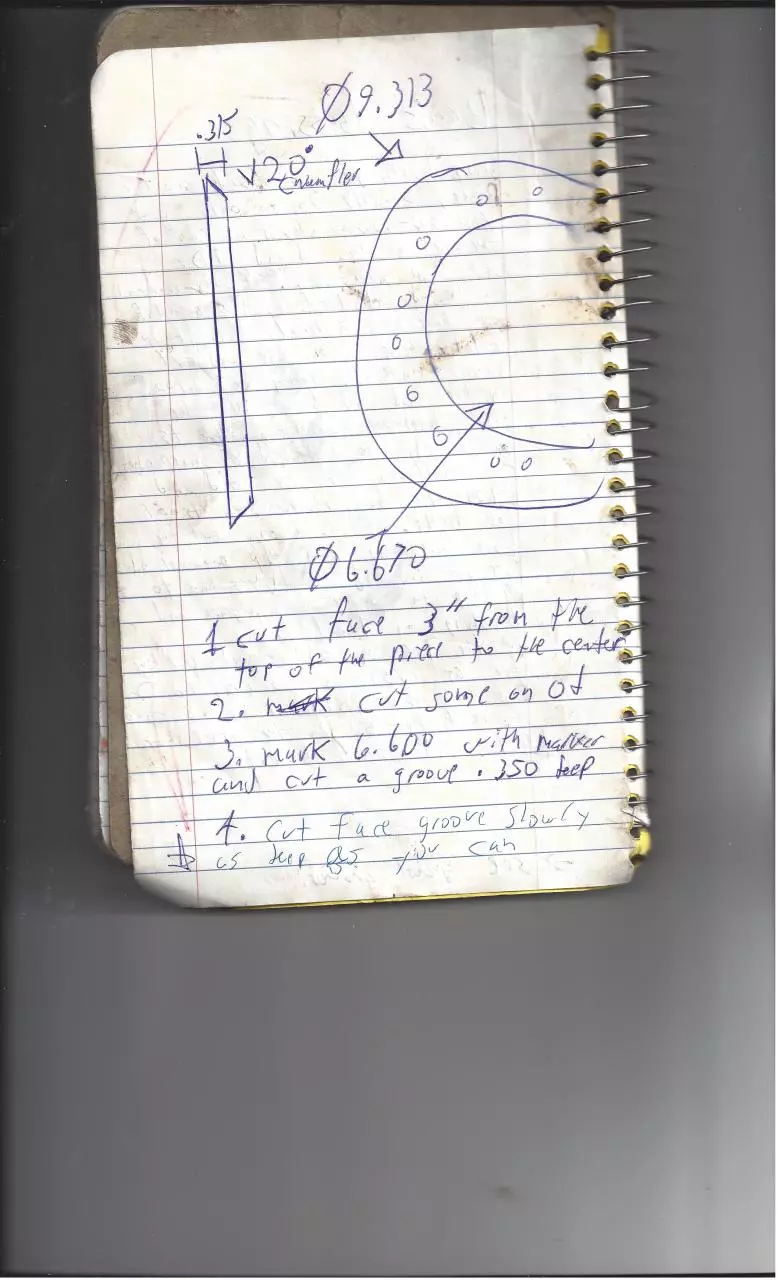 Ø9.313
.315
20°
Chamfler
Ø6.670
1 cut face 3" from the
top of the piece to the center
2. mark cut some on Od
3. mark 6.600 with marker
and cut a groove .350 deep
4. Cut face groove slowly
as deep as you can